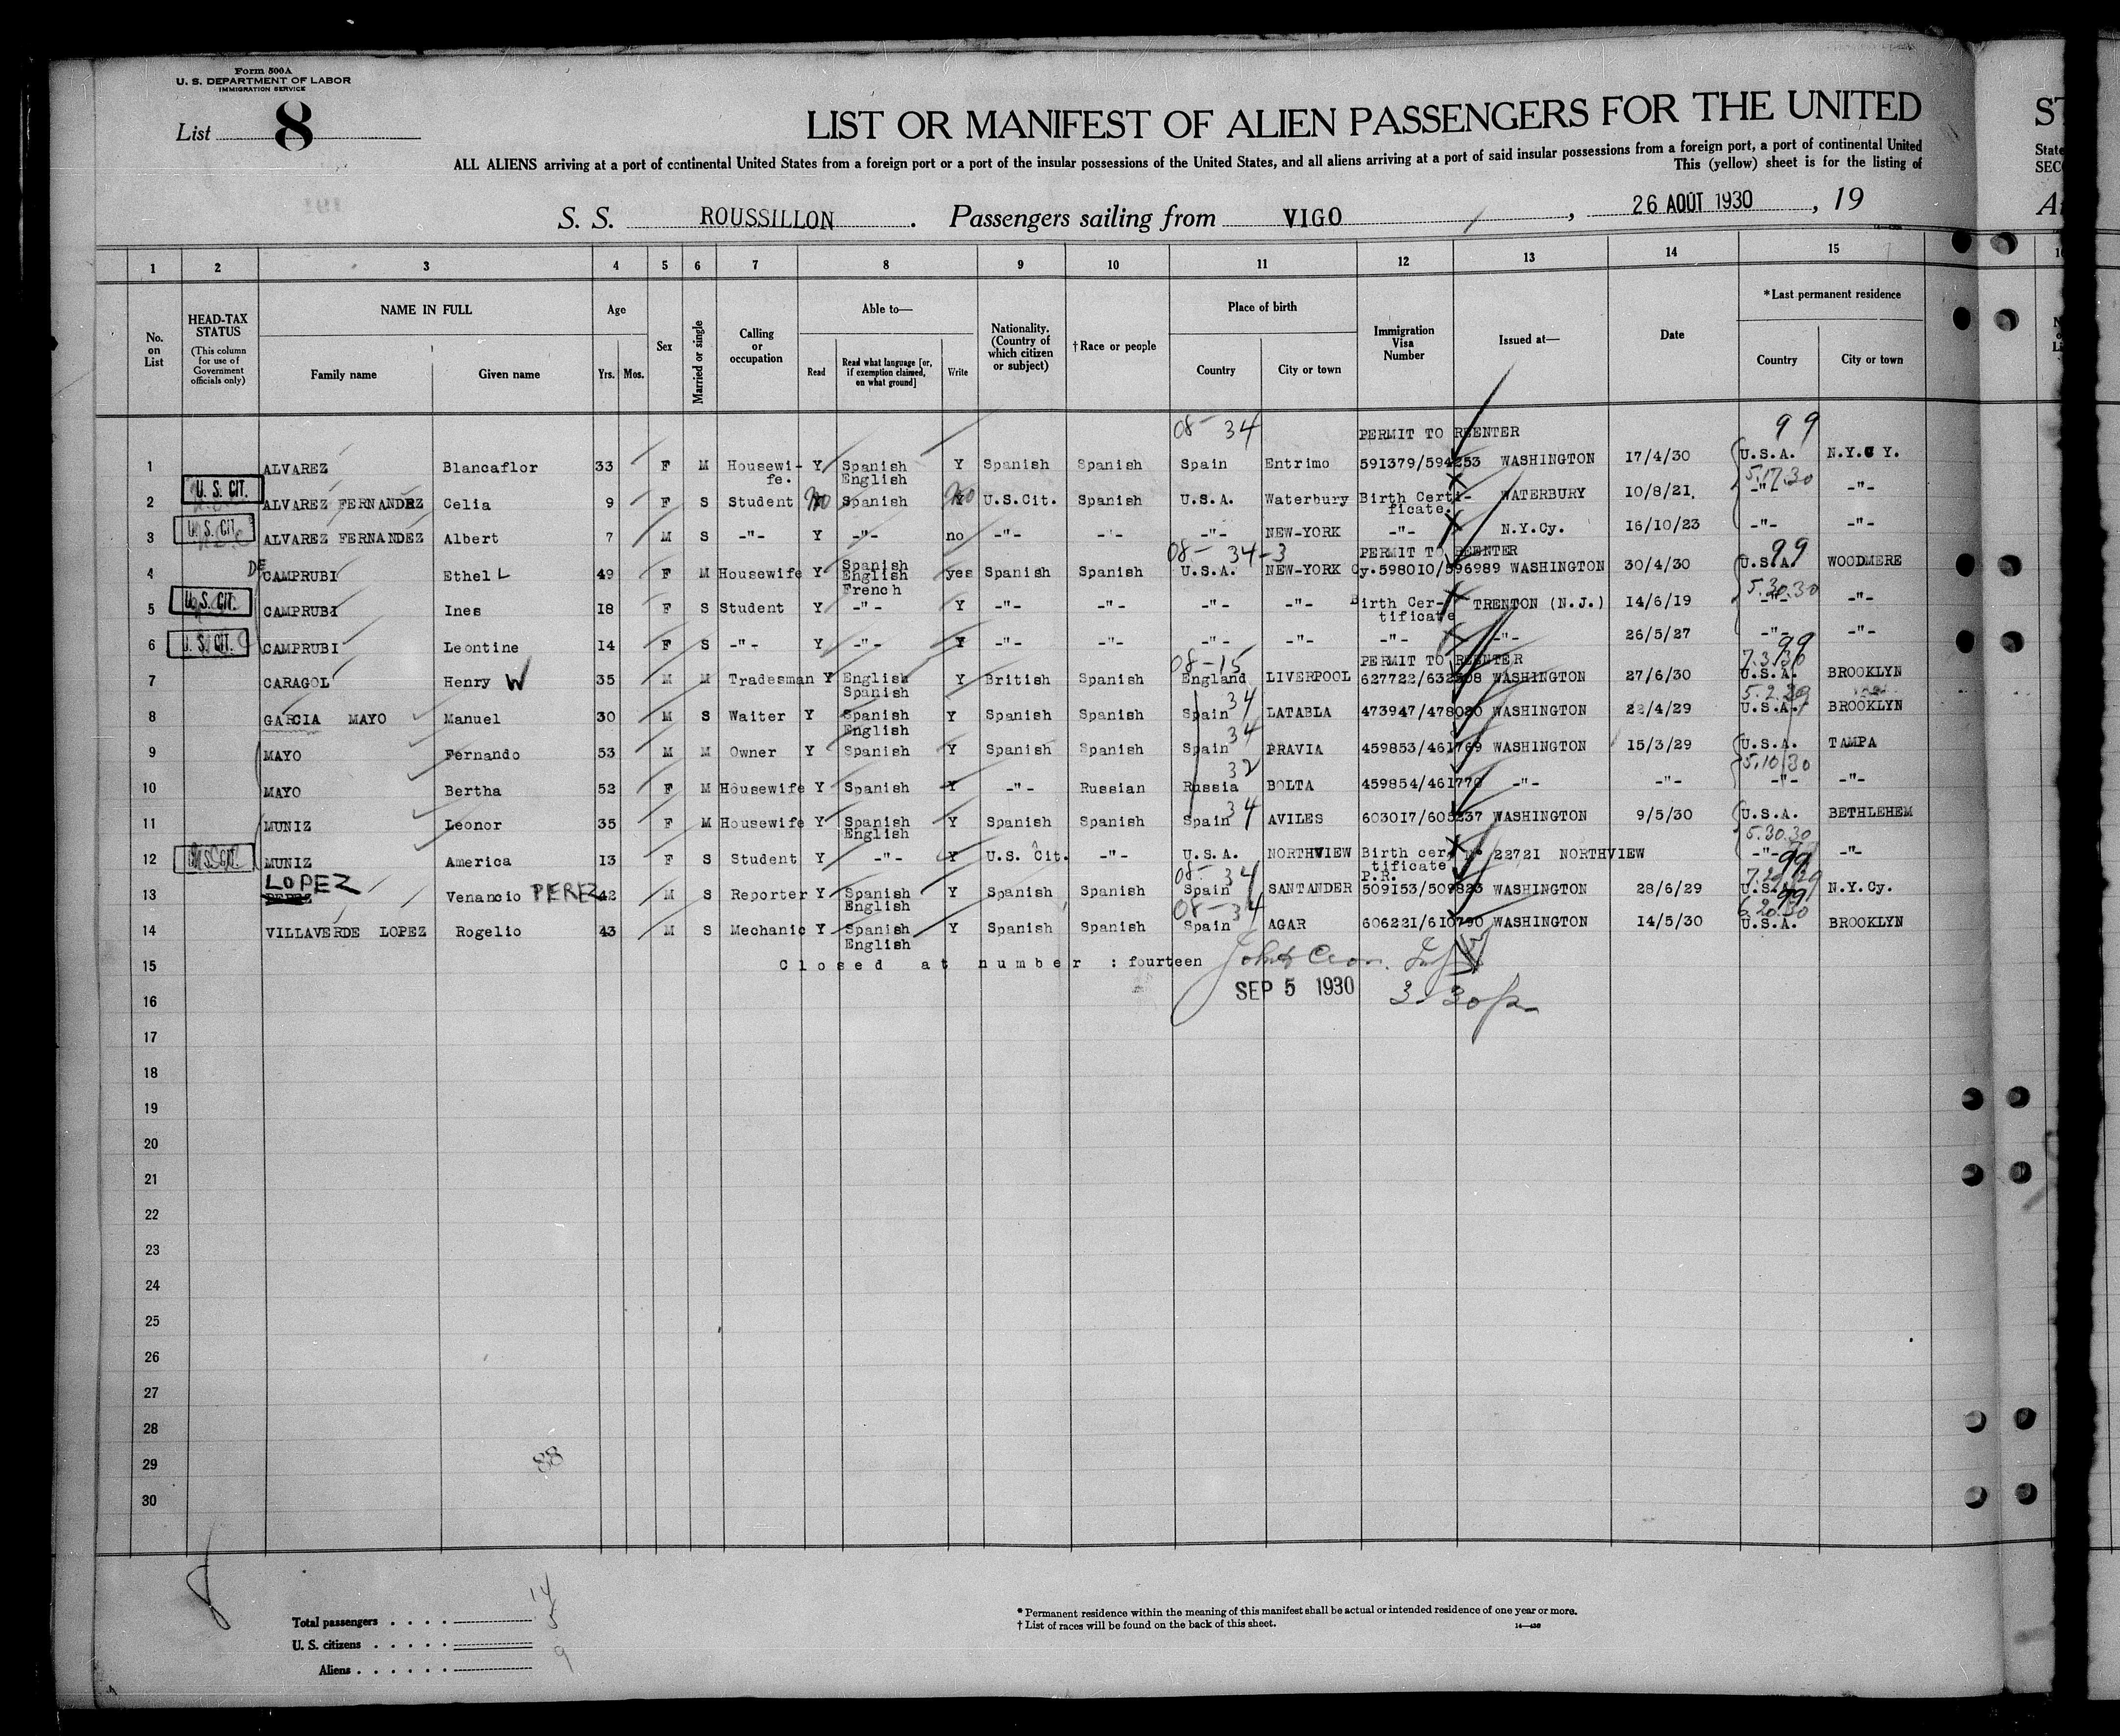 Form 500A
U. S. DEPARTMENT OF LABOR
IMMIGRATION SERVICE
List 8
LIST OR MANIFEST OF ALIEN PASSENGERS FOR THE UNITED
ST
ALL ALIENS arriving at a port of continental United States from a foreign port or a port of the insular possessions of the United States, and all aliens arriving at a port of said insular possessions from a foreign port, a port of continental United
State
This (yellow) sheet is for the listing of
SEC
S. S. ROUSSILLON . Passengers sailing from VIGO , 26 AOUT 1930 , 19
1 2 3 4 5 6 7 8 9 10 11 12 13 14 15
No. on List
HEAD-TAX STATUS
(This column for use of Government officials only)
NAME IN FULL
Family name
Given name
Age
Yrs. Mos.
Sex
Married or single
Calling or occupation
Able to—
Read
Read what language [or, if exemption claimed, on what ground]
Write
Nationality. (Country of which citizen or subject)
†Race or people
Place of birth
Country
City or town
Immigration Visa Number
Issued at—
Date
*Last permanent residence
Country
City or town
08- 34 PERMIT TO REENTER 99
1 ALVAREZ Blancaflor 33 F M Housewi- fe. Y Spanish English Y Spanish Spanish Spain Entrimo 591379/594253 WASHINGTON 17/4/30 U.S.A. N.Y.C Y.
5.17.30
2 U. S. CIT. ALVAREZ FERNANDEZ Celia 9 F S Student No Spanish No U.S.Cit. Spanish U.S.A. Waterbury Birth Certi- ficate. WATERBURY 10/8/21. -"- -"-
3 U. S. CIT. ALVAREZ FERNANDEZ Albert 7 M S -"- Y -"- no -"- -"- -"- NEW-YORK -"- N.Y.Cy. 16/10/23 -"- -"-
08- 34-3 PERMIT TO REENTER 99
4 DE CAMPRUBI Ethel L 49 F M Housewife Y Spanish English French yes Spanish Spanish U.S.A. NEW-YORK Cy. 598010/596989 WASHINGTON 30/4/30 U.S.A. WOODMERE
5.30.30
5 U. S. CIT. CAMPRUBI Ines 18 F S Student Y -"- Y -"- -"- -"- -"- Birth Cer- tificate TRENTON (N.J.) 14/6/19 -"- -"-
6 U. S. CIT. CAMPRUBI Leontine 14 F S -"- Y -"- Y -"- -"- -"- -"- -"- -"- 26/5/27 -"- -"-
08-15 PERMIT TO REENTER 99
7.3.30
7 CARAGOL Henry W 35 M M Tradesman Y English Spanish Y British Spanish England LIVERPOOL 627722/632508 WASHINGTON 27/6/30 U.S.A. BROOKLYN
34 5.2.29
8 GARCIA MAYO Manuel 30 M S Waiter Y Spanish English Y Spanish Spanish Spain LATABLA 473947/478020 WASHINGTON 22/4/29 U.S.A. BROOKLYN
34
9 MAYO Fernando 53 M M Owner Y Spanish Y Spanish Spanish Spain PRAVIA 459853/461769 WASHINGTON 15/3/29 U.S.A. TAMPA
32 5.10.30
10 MAYO Bertha 52 F M Housewife Y Spanish Y -"- Russian Russia BOLTA 459854/461770 -"- -"- -"- -"-
34
11 MUNIZ Leonor 35 F M Housewife Y Spanish English Y Spanish Spanish Spain AVILES 603017/605237 WASHINGTON 9/5/30 U.S.A. BETHLEHEM
5.30.30
12 U. S. CIT. MUNIZ America 13 F S Student Y -"- Y U.S. Cit. -"- U.S.A. NORTHVIEW Birth cer. tificate N° 22721 NORTHVIEW -"- -"-
LOPEZ 08- 34 P.R. 99
13 PEREZ Venancio PEREZ 42 M S Reporter Y Spanish English Y Spanish Spanish Spain SANTANDER 509153/509823 WASHINGTON 28/6/29 U.S.A. N.Y.Cy.
08-34 99
6.20.30
14 VILLAVERDE LOPEZ Rogelio 43 M S Mechanic Y Spanish English Y Spanish Spanish Spain AGAR 606221/610790 WASHINGTON 14/5/30 U.S.A. BROOKLYN
15 Closed at number : fourteen
SEP 5 1930 3.30p
16
17
18
19
20
21
22
23
24
25
26
27
28
29
88
30
Total passengers . . . . 14
U. S. citizens . . . . . 5
Aliens . . . . . . 9
* Permanent residence within the meaning of this manifest shall be actual or intended residence of one year or more.
† List of races will be found on the back of this sheet.